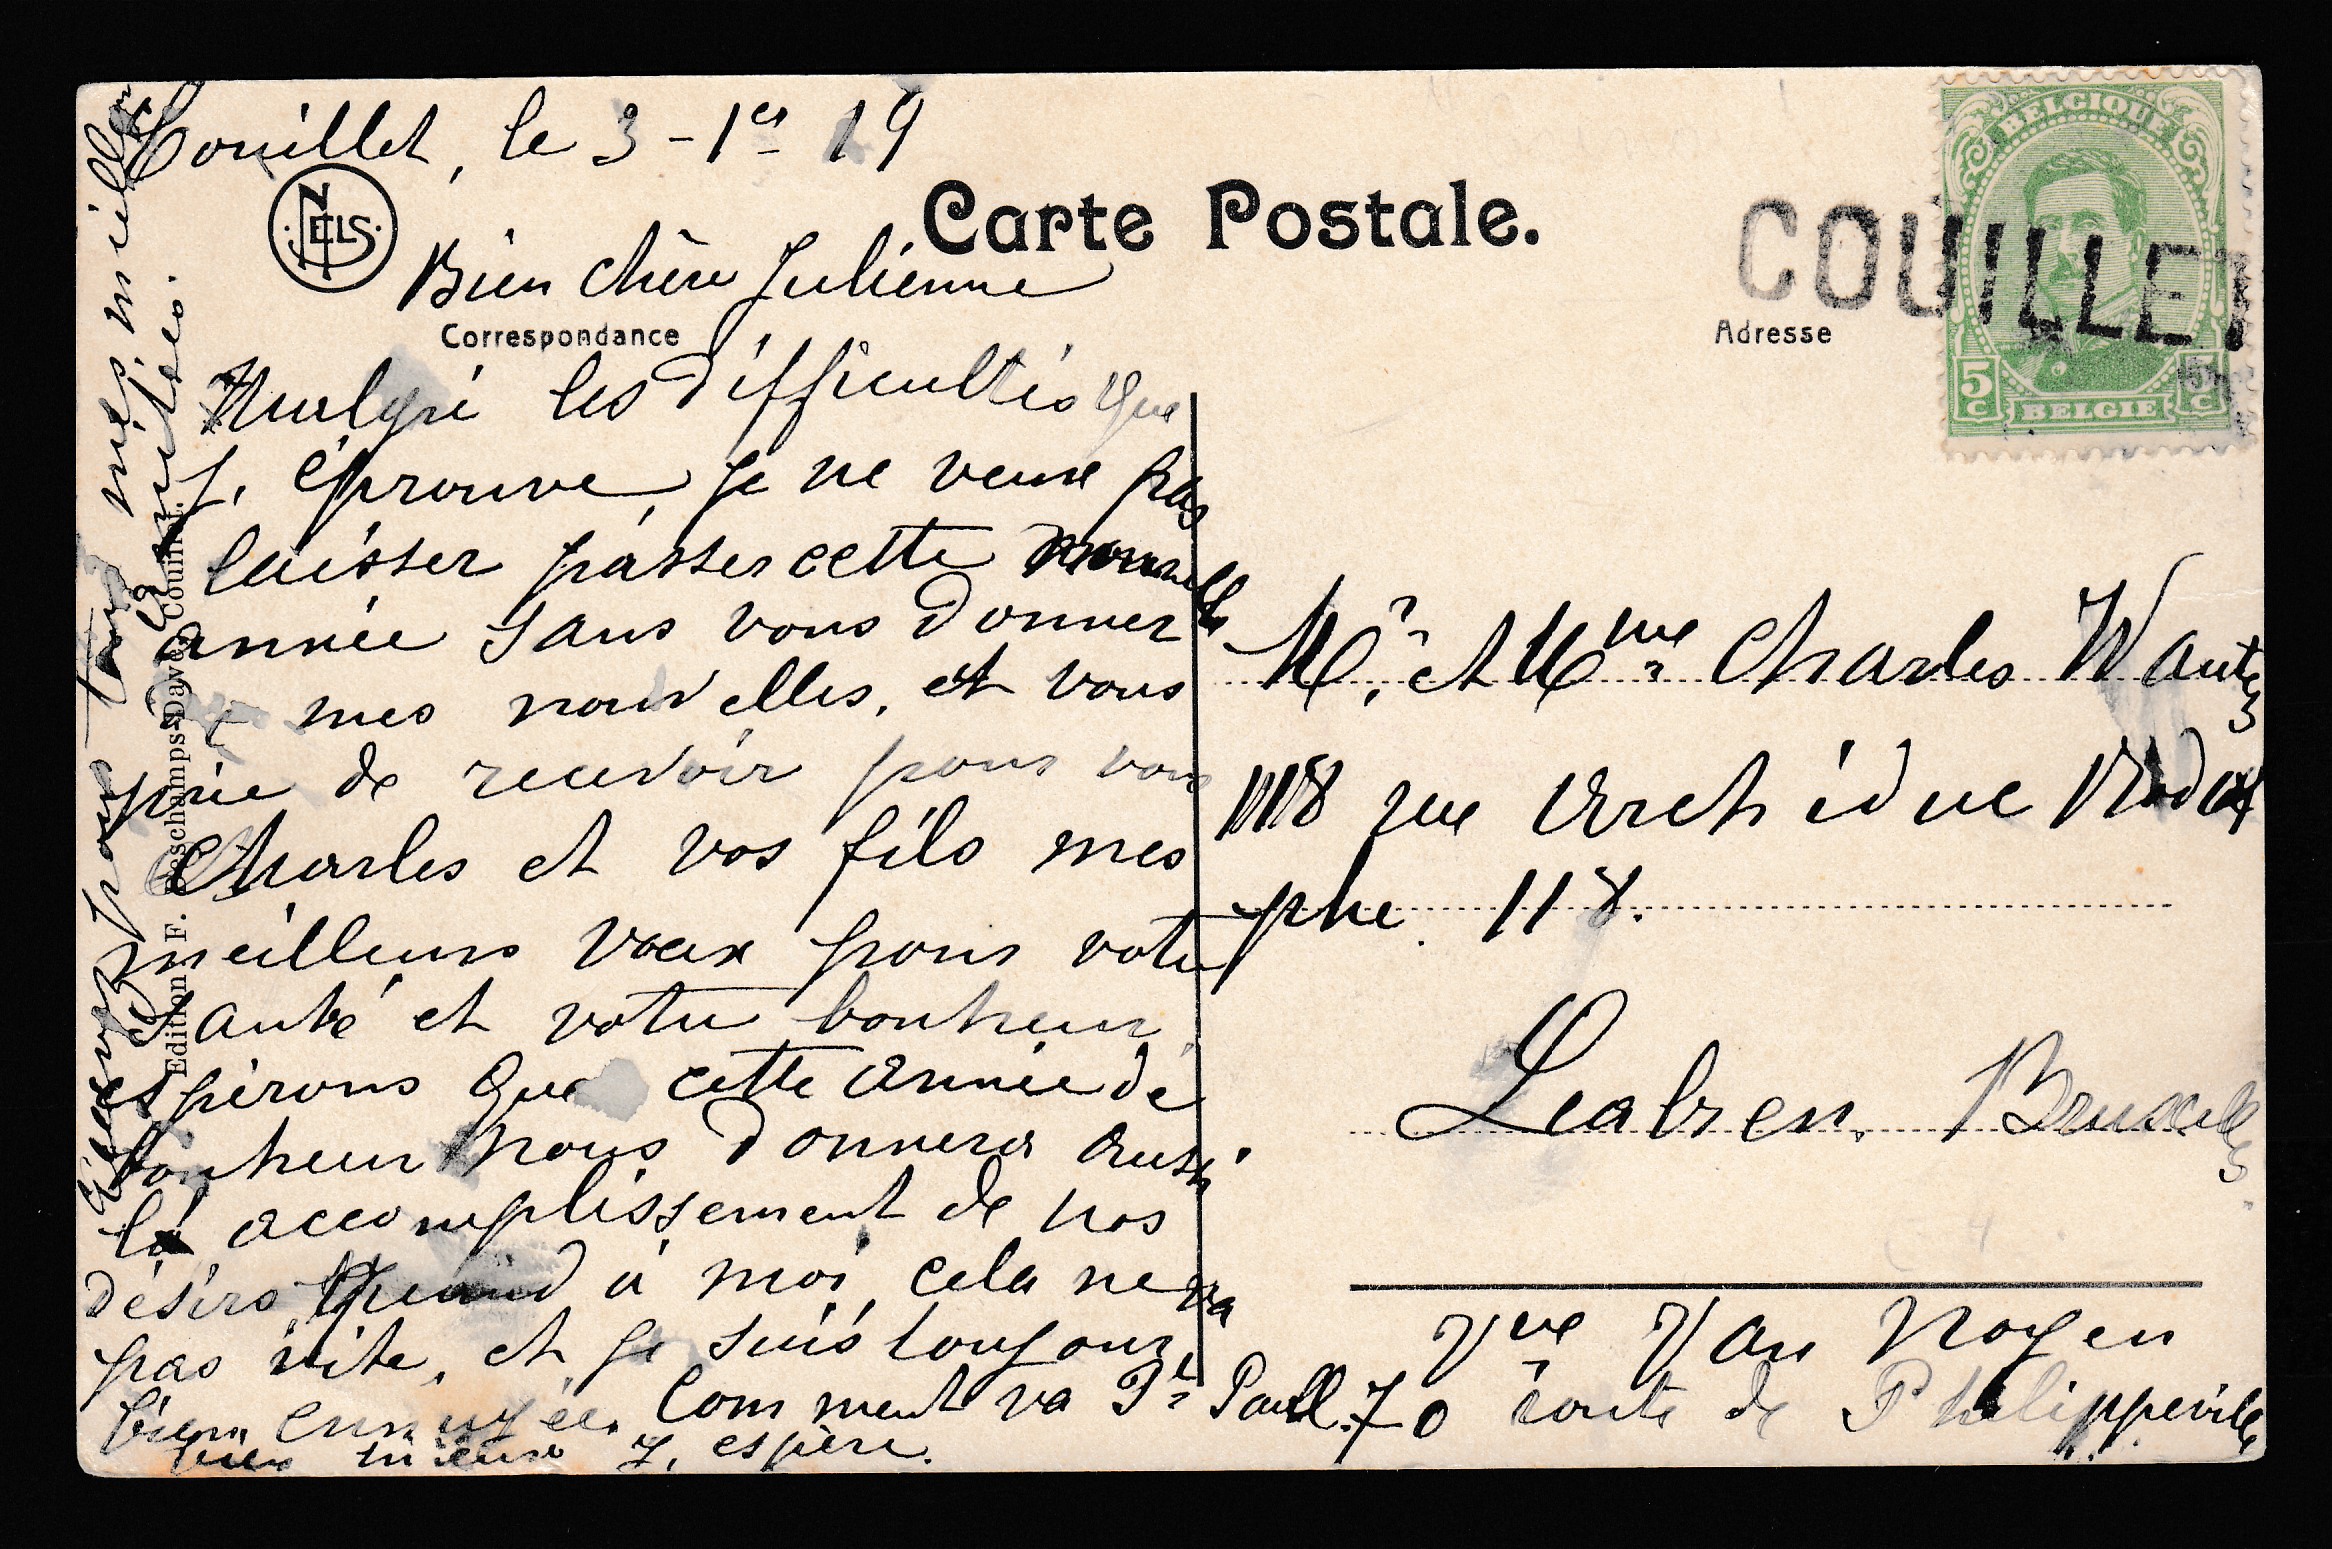 Couillet, le 3 - 1er 19
NELS
Carte Postale.
Bien chère Julienne
Correspondance
Malgré les difficultés que
j, éprouve, je ne veux pas
laisser passer cette nouvelle
année sans vous donner
mes nouvelles, et vous
prie de recevoir pour vous
Charles et vos fils mes
meilleurs vœux pour votre
santé et votre bonheur
espérons que cette année de
bonheur nous donnera aussi
la accomplissement de nos
désirs quand à moi, cela ne va
pas vite, et je suis toujours
bien ennuyée. Comment va Pt Paul.
bien mieux j, espère.
pour tous mes meilleurs
amitiés.
Edition F. Deschamps-Dave, Couillet.
COUILLET
Adresse
BELGIQUE
5 C
5 C
BELGIE
Mr. et Mme Charles Wautz
118 rue Archiduc Rodol
phe. 118.
Leaken. Bruxelles
Vve Van Noyen
70 route de Philippeville